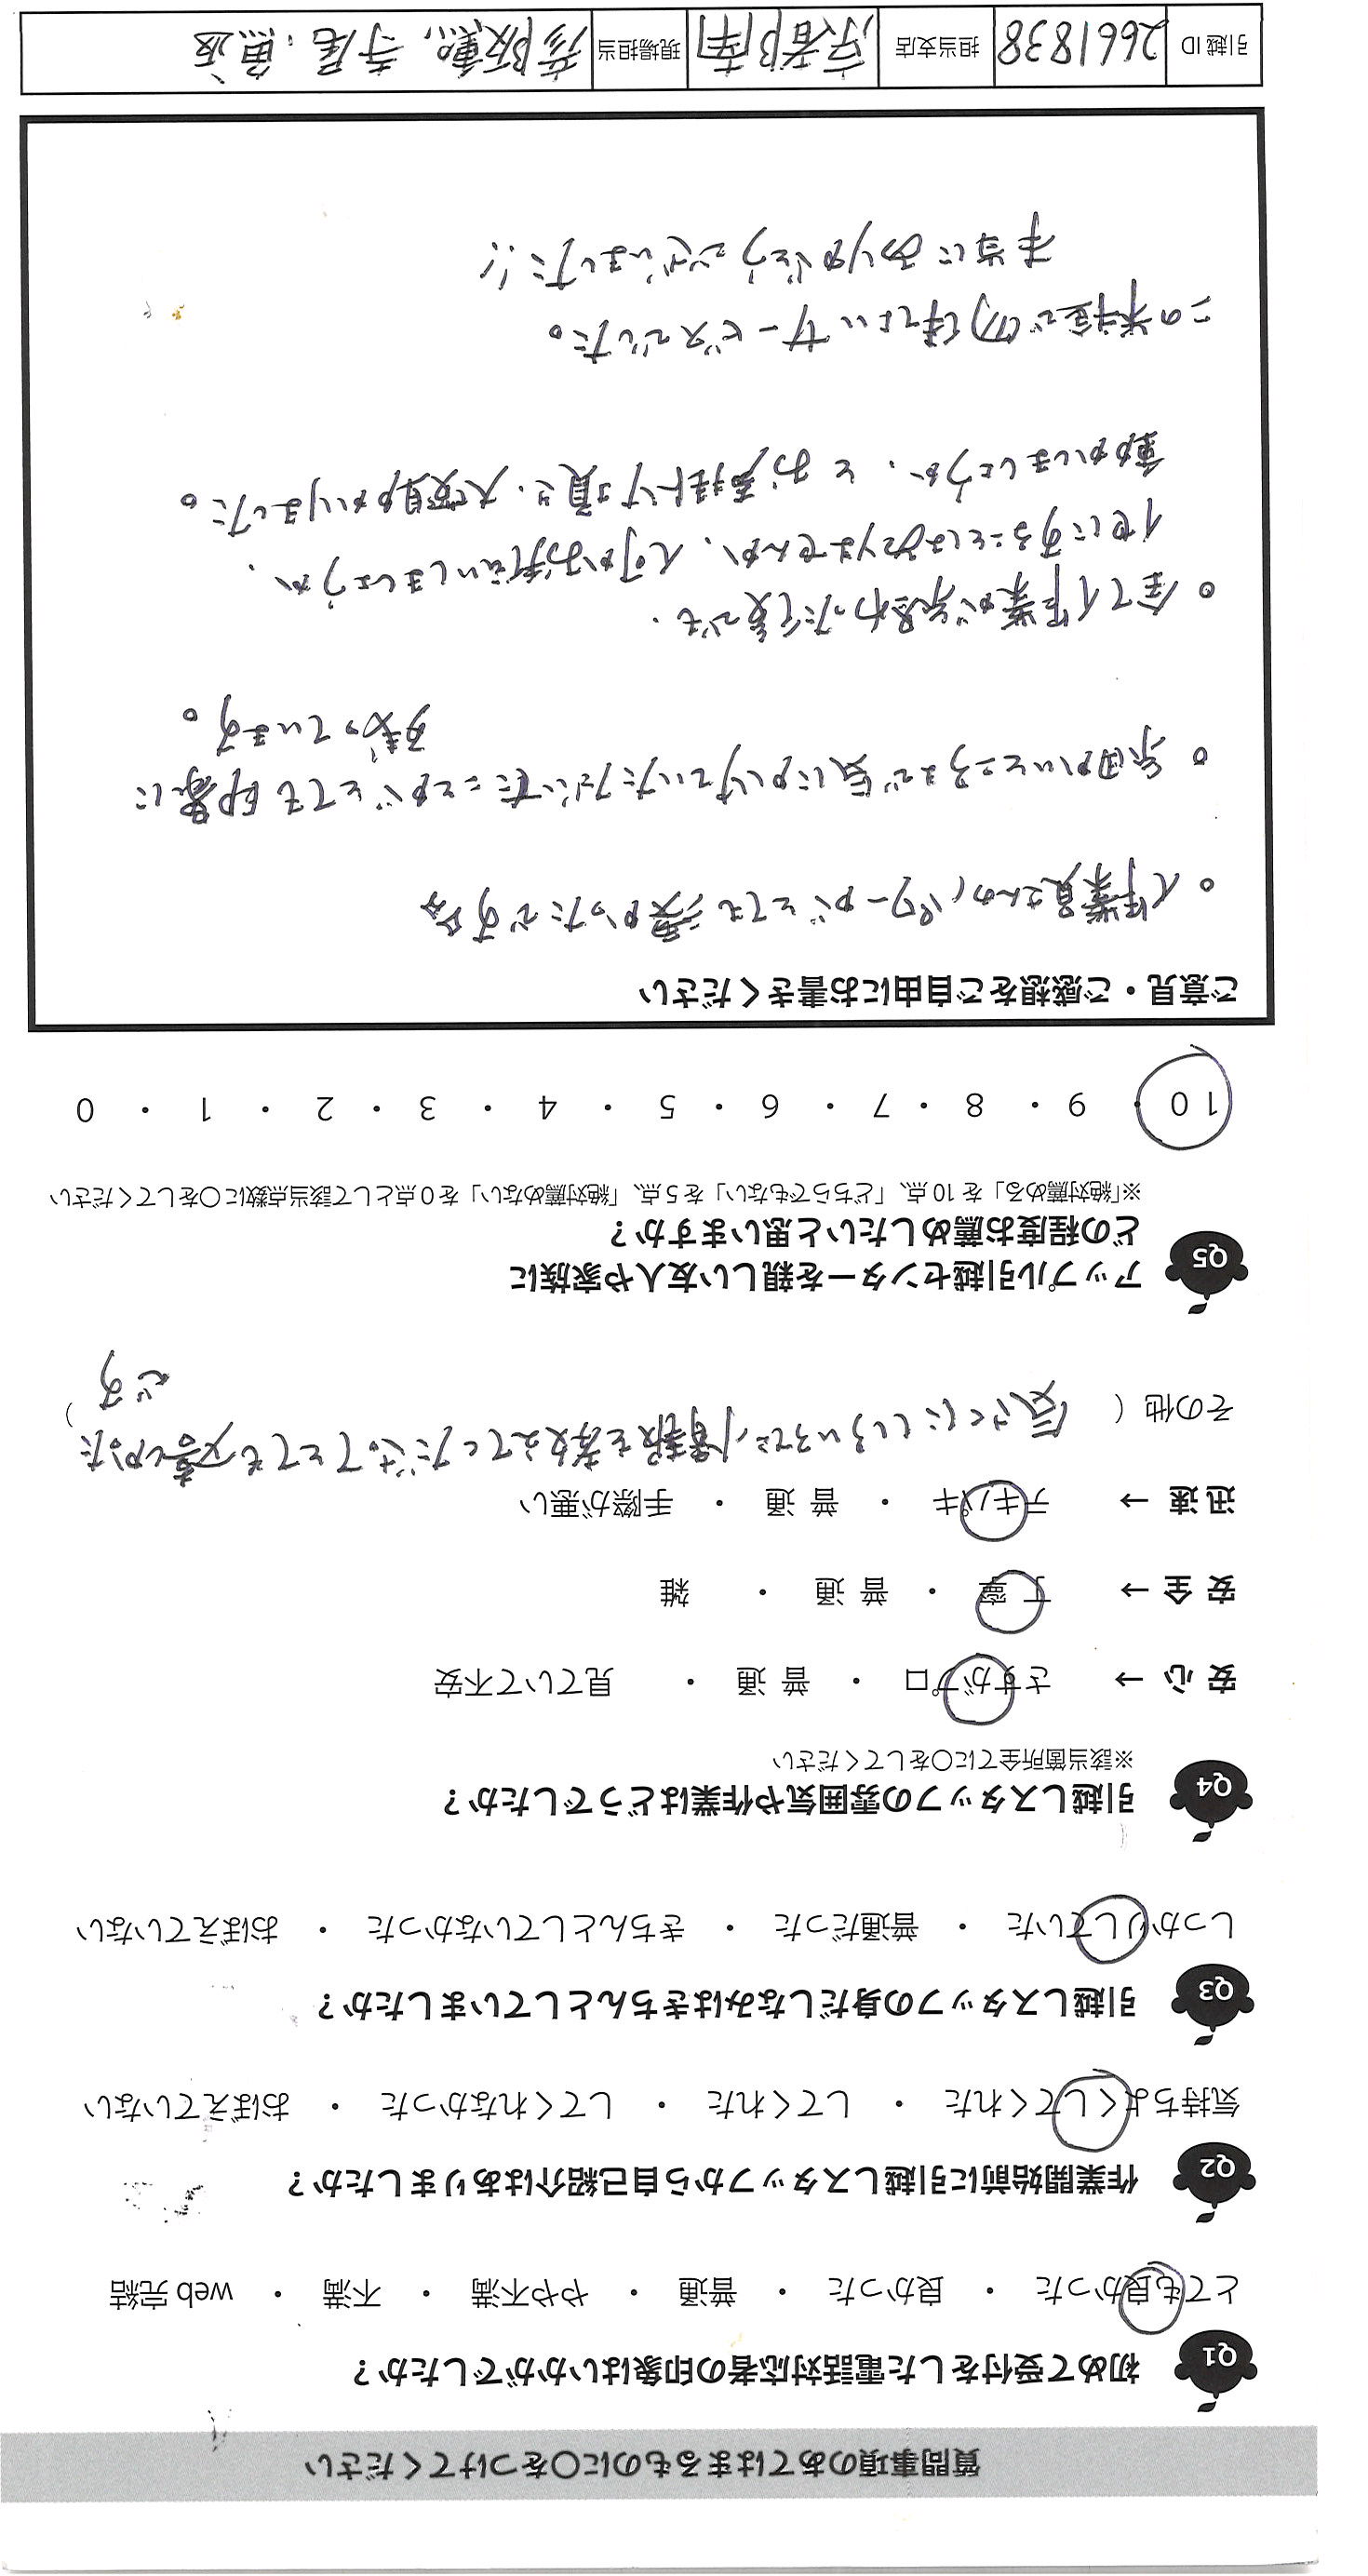 質問事項のあてはまるものに〇をつけてください
Q1 初めて受付をした電話対応者の印象はいかがでしたか？
とても良かった ・ 良かった ・ 普通 ・ やや不満 ・ 不満 ・ web 完結
Q2 作業開始前に引越しスタッフから自己紹介はありましたか？
気持ちよくしてくれた ・ してくれた ・ してくれなかった ・ おぼえていない
Q3 引越しスタッフの身だしなみはきちんとしていましたか？
しっかりしていた ・ 普通だった ・ きちんとしていなかった ・ おぼえていない
Q4 引越しスタッフの雰囲気や作業はどうでしたか？
※該当箇所全てに〇をしてください
安 心 → さすがプロ ・ 普 通 ・ 見ていて不安
安 全 → 丁 寧 ・ 普 通 ・ 雑
迅 速 → テキパキ ・ 普 通 ・ 手際が悪い
その他 ( 気さくにいろいろと情報を教えてくださってとても楽しかった
です )
Q5 アップル引越センターを親しい友人や家族に
どの程度お薦めしたいと思いますか？
※「絶対薦める」を 10 点、「どちらでもない」を 5 点、「絶対薦めない」を 0 点として該当点数に〇をしてください
10 ・ 9 ・ 8 ・ 7 ・ 6 ・ 5 ・ 4 ・ 3 ・ 2 ・ 1 ・ 0
ご意見・ご感想をご自由にお書きください
○ 作業員さんのパワーがとても凄かったです
○ 細かいところまで気にかけていただいたことがとても印象に
残っています。
○ 全て作業が終わった後でも、
他にすることはありませんか、何かお手伝いしましょうか、
動かしましょうか、とお声掛け頂き、大変助かりました。
この料金で切 サービスでした。
本当にありがとうございました!!
引越 ID 2661838 担当支店 京都南 現場担当 彦阪勲, 寺尾, 魚返